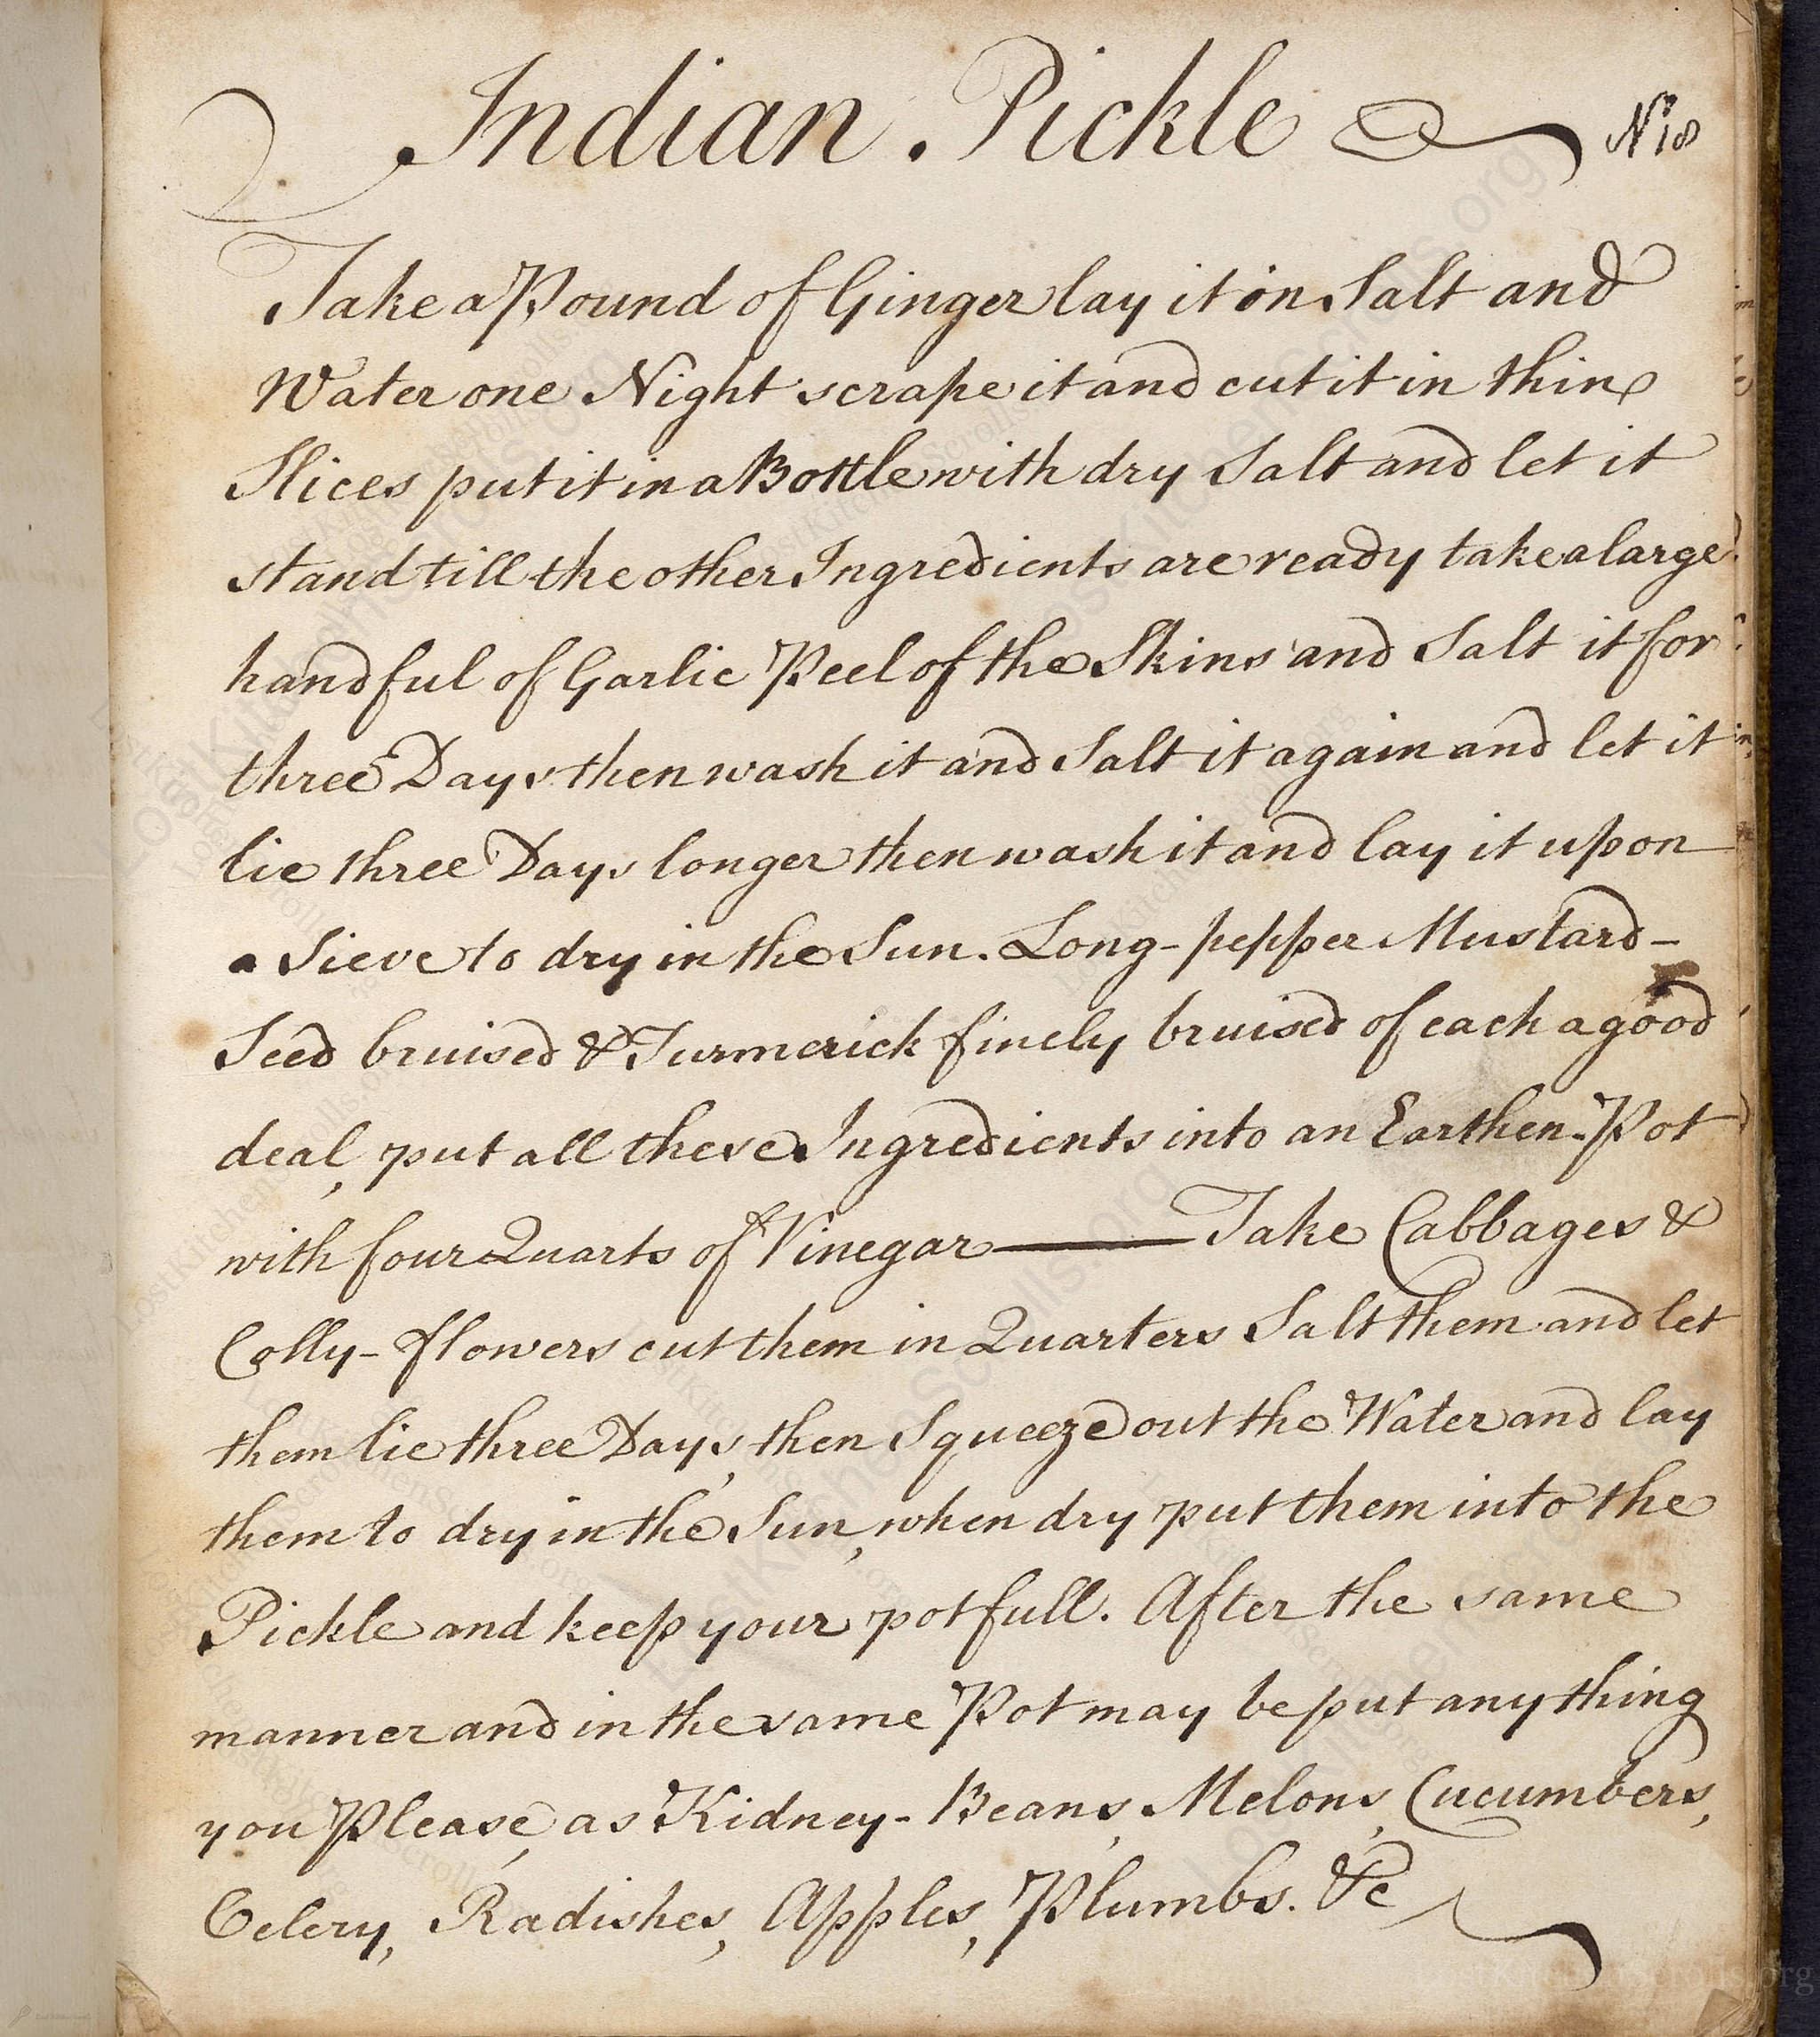 Indian Pickle
No 18
Take a Pound of Ginger lay it in Salt and
Water one Night scrape it and cut it in thin
Slices put it in a Bottle with dry Salt and let it
stand till the other Ingredients are ready take a large
handful of Garlic Peel of the Skins and Salt it for
three Days then wash it and Salt it again and let it
lie three Days longer then wash it and lay it upon
a Sieve to dry in the Sun. Long-pepper Mustard-
Seed bruised & Turmerick finely bruised of each a good
deal, put all these Ingredients into an Earthen-Pot
with four Quarts of Vinegar — Take Cabbages &
Colly-flowers cut them in Quarters Salt them and let
them lie three Days, then Squeeze out the Water and lay
them to dry in the Sun, when dry put them into the
Pickle and keep your pot full. After the same
manner and in the same Pot may be put any thing
you Please, as Kidney-Beans, Melons, Cucumbers,
Celery, Radishes, Apples, Plumbs. &c
LostKitchenScrolls.org